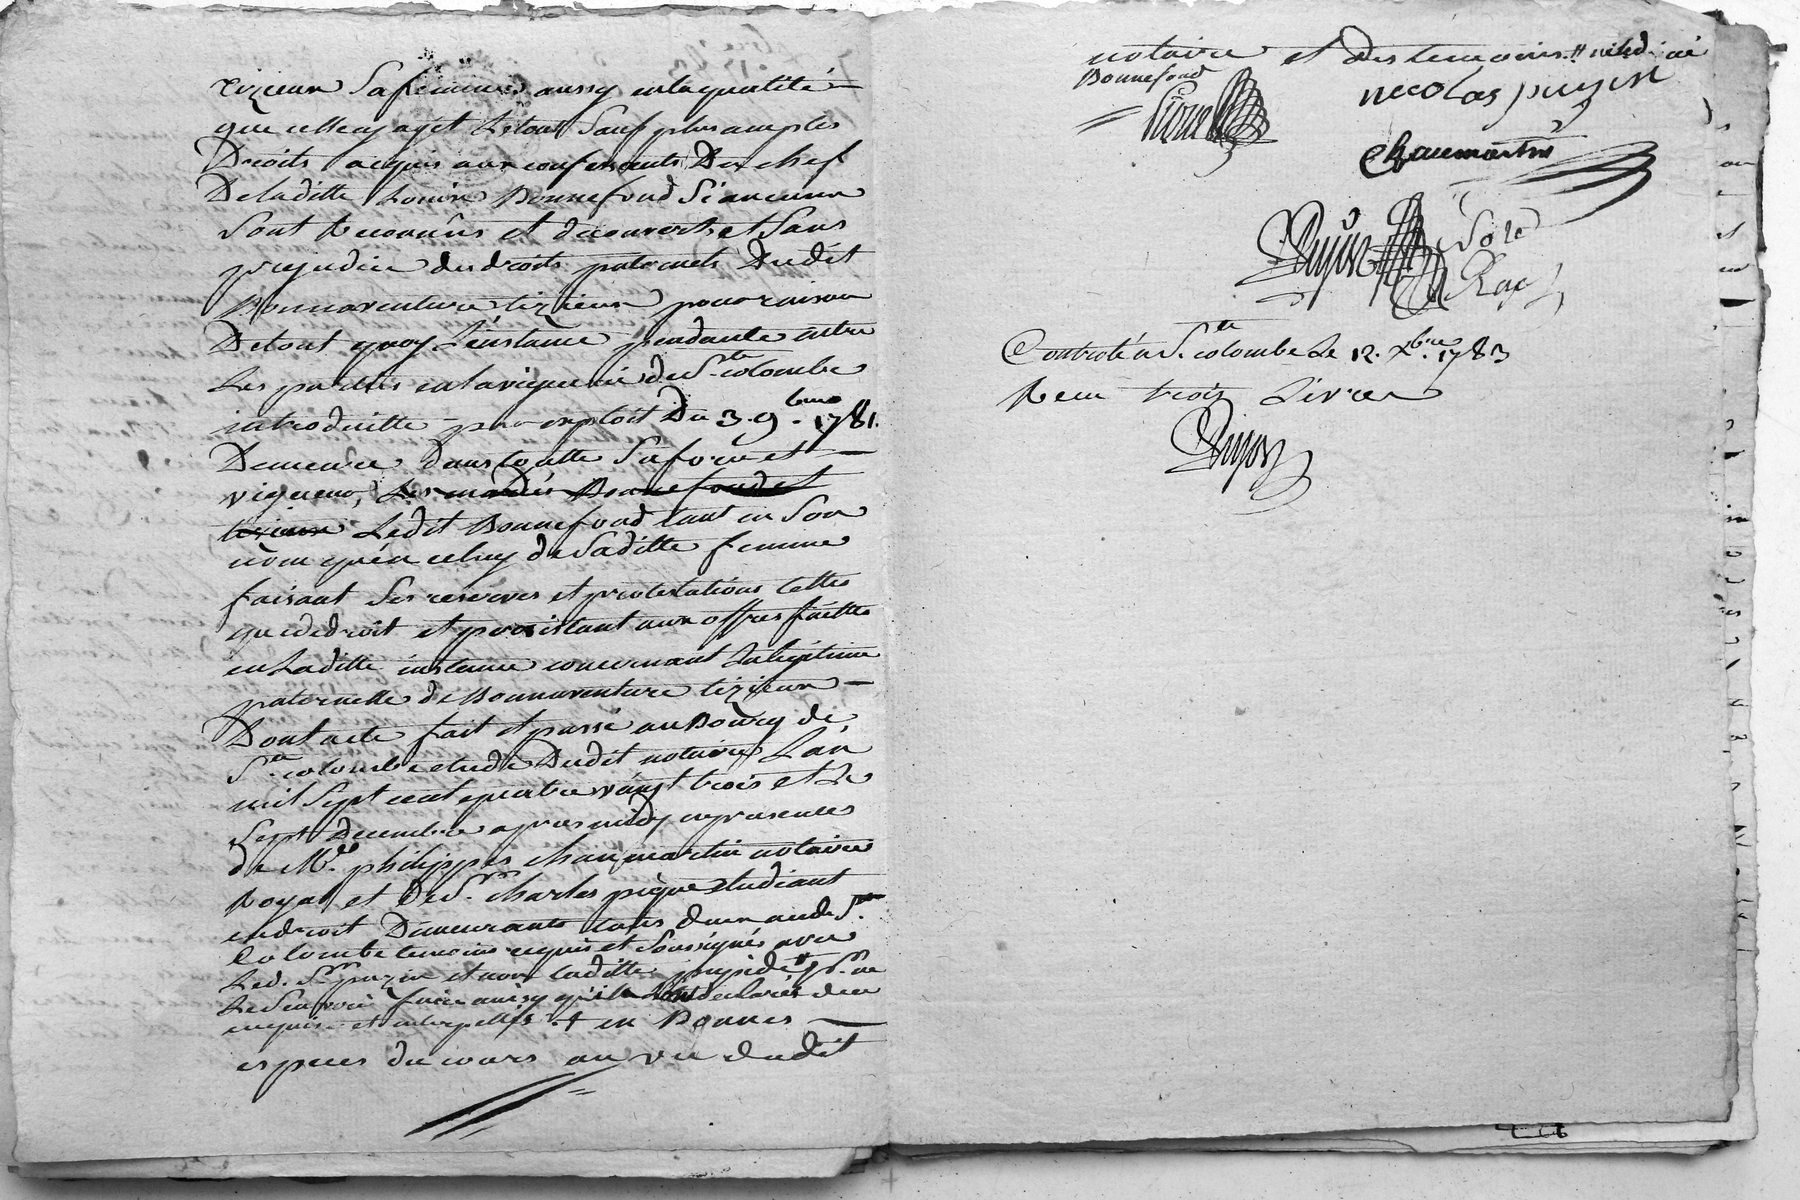 tizieux sa femme, aussy en la qualité
que celle cy agit Le tout sauf plus amples
Droits acquis aux conferents Du chef
De laditte Louise Bonnefond si aucuns
sont reconnus et decouverts et sans
prejudice des droits paternels Dudit
Bonnaventure tizieux pour raison
De tout quoy L'instance pendante entre
Les parties en la viguerie de Ste colombe
introduitte par exploit Du 3. 9bre 1781.
Demeure dans toutte sa force et
vigueur, Les mariés Bonnefond et
tizieux Ledit Bonnefond tant en son
nom qu'en celuy de saditte femme
faisant ses reserves et protestations telles
que de droit et persistant aux offres faittes
en Laditte instance concernant La legitime
paternelle de Bonnaventure tizieux
Dont acte fait et passé au Bourg de
Ste colombe etude Dudit notaire L'an
mil sept cent quatre vingt trois et Le
sept Decembre apres midy en presence
de Me. philippes chaumartin notaire
Royal et De Sr. charles pigre etudiant
en droit Demeurants tous deux audit Ste
Colombe temoins requis et soussignés avec
Led. Sr et non laditte
Le scavoir faire ainsy qu'ils L'ont declarés de ce
enquis et interpellés. + en Bonnes
especes du cours au vu dudit
notaire et des temoins
Bonnefond
necolas
Chaumartin
Controlé a Ste. colombe Le 12. Xbre. 1783
Reçu trois Livres